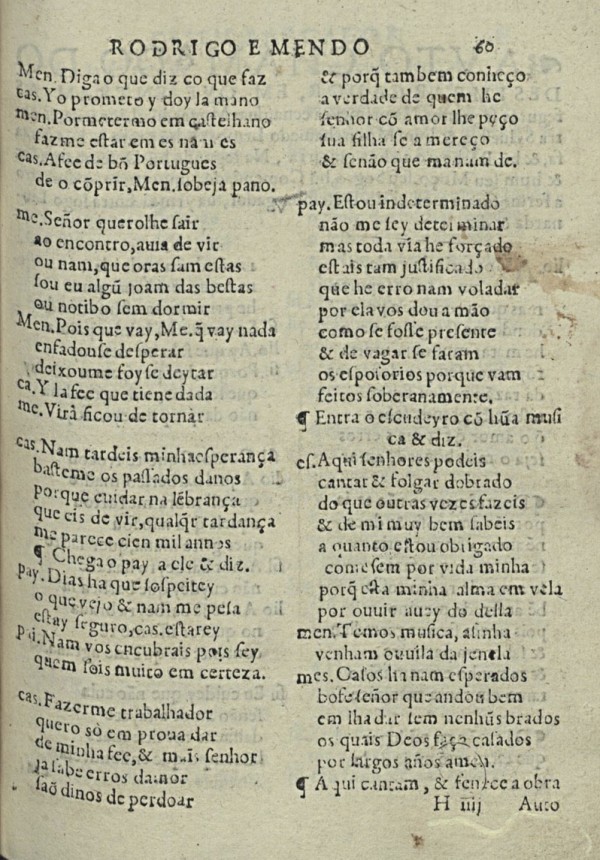 RODRIGO E MENDO 60
Men. Diga o que diz co que faz
cas. Yo prometo y doy la mano
men. Pormetermo em castelhano
faz me estar em es nam es
cas. A fee de bõ Portugues
de o cõprir, Men. sobeja pano.
me. Señor querolhe sair
ao encontro, auia de vir
ou nam, que oras sam estas
sou eu algũ joam das bestas
ou notibo sem dormir
Men. Pois que vay, Me. q̃ vay nada
enfadouse desperar
deixoume foy se deytar
ca. Y la fee que tiene dada
me. Virà ficou de tornar
cas. Nam tardeis minha esperança
basteme os passados danos
porque cuidar na lẽbrança
que eis de vir, qualq̃r tardança
me parece cien mil annos
¶ Chega o pay a ele & diz.
pay. Dias ha que sospeitey
o que vejo & nam me pesa
estay seguro, cas. estarey
pai. Nam vos encubrais pois sey
quem sois muito em certeza.
cas. Fazerme trabalhador
quero só em proua dar
de minha fee, & mais senhor
ja sabe erros damor
saõ dinos de perdoar
& porq̃ tambem conheço
a verdade de quem he
senhor cõ amor lhe peço
sua filha se a mereço
& senão que ma nam de.
pay. Estou indeterminado
não me sey determinar
mas toda via he forçado
estais tam justificado
que he erro nam vola dar
por ela vos dou a mão
como se fosse presente
& de vagar se faram
os esposorios porque vam
feitos soberanamente.
¶ Entra o escudeyro cõ hũa musi
ca & diz.
es. Aqui senhores podeis
cantar & folgar dobrado
do que outras vezes fazeis
& de mi muy bem sabeis
a quanto estou obrigado
comesem por vida minha
porq̃ esta minha alma em vela
por ouuir auey do della
men. Temos musica, asinha
venham ouuila da jenela
mes. Casos ha nam esperados
bofe señor que andou bem
em lha dar sem nenhũs brados
os quais Deos faça casados
por largos años amen.
¶ Aqui cantam, & fenece a obra
H iiij Auto